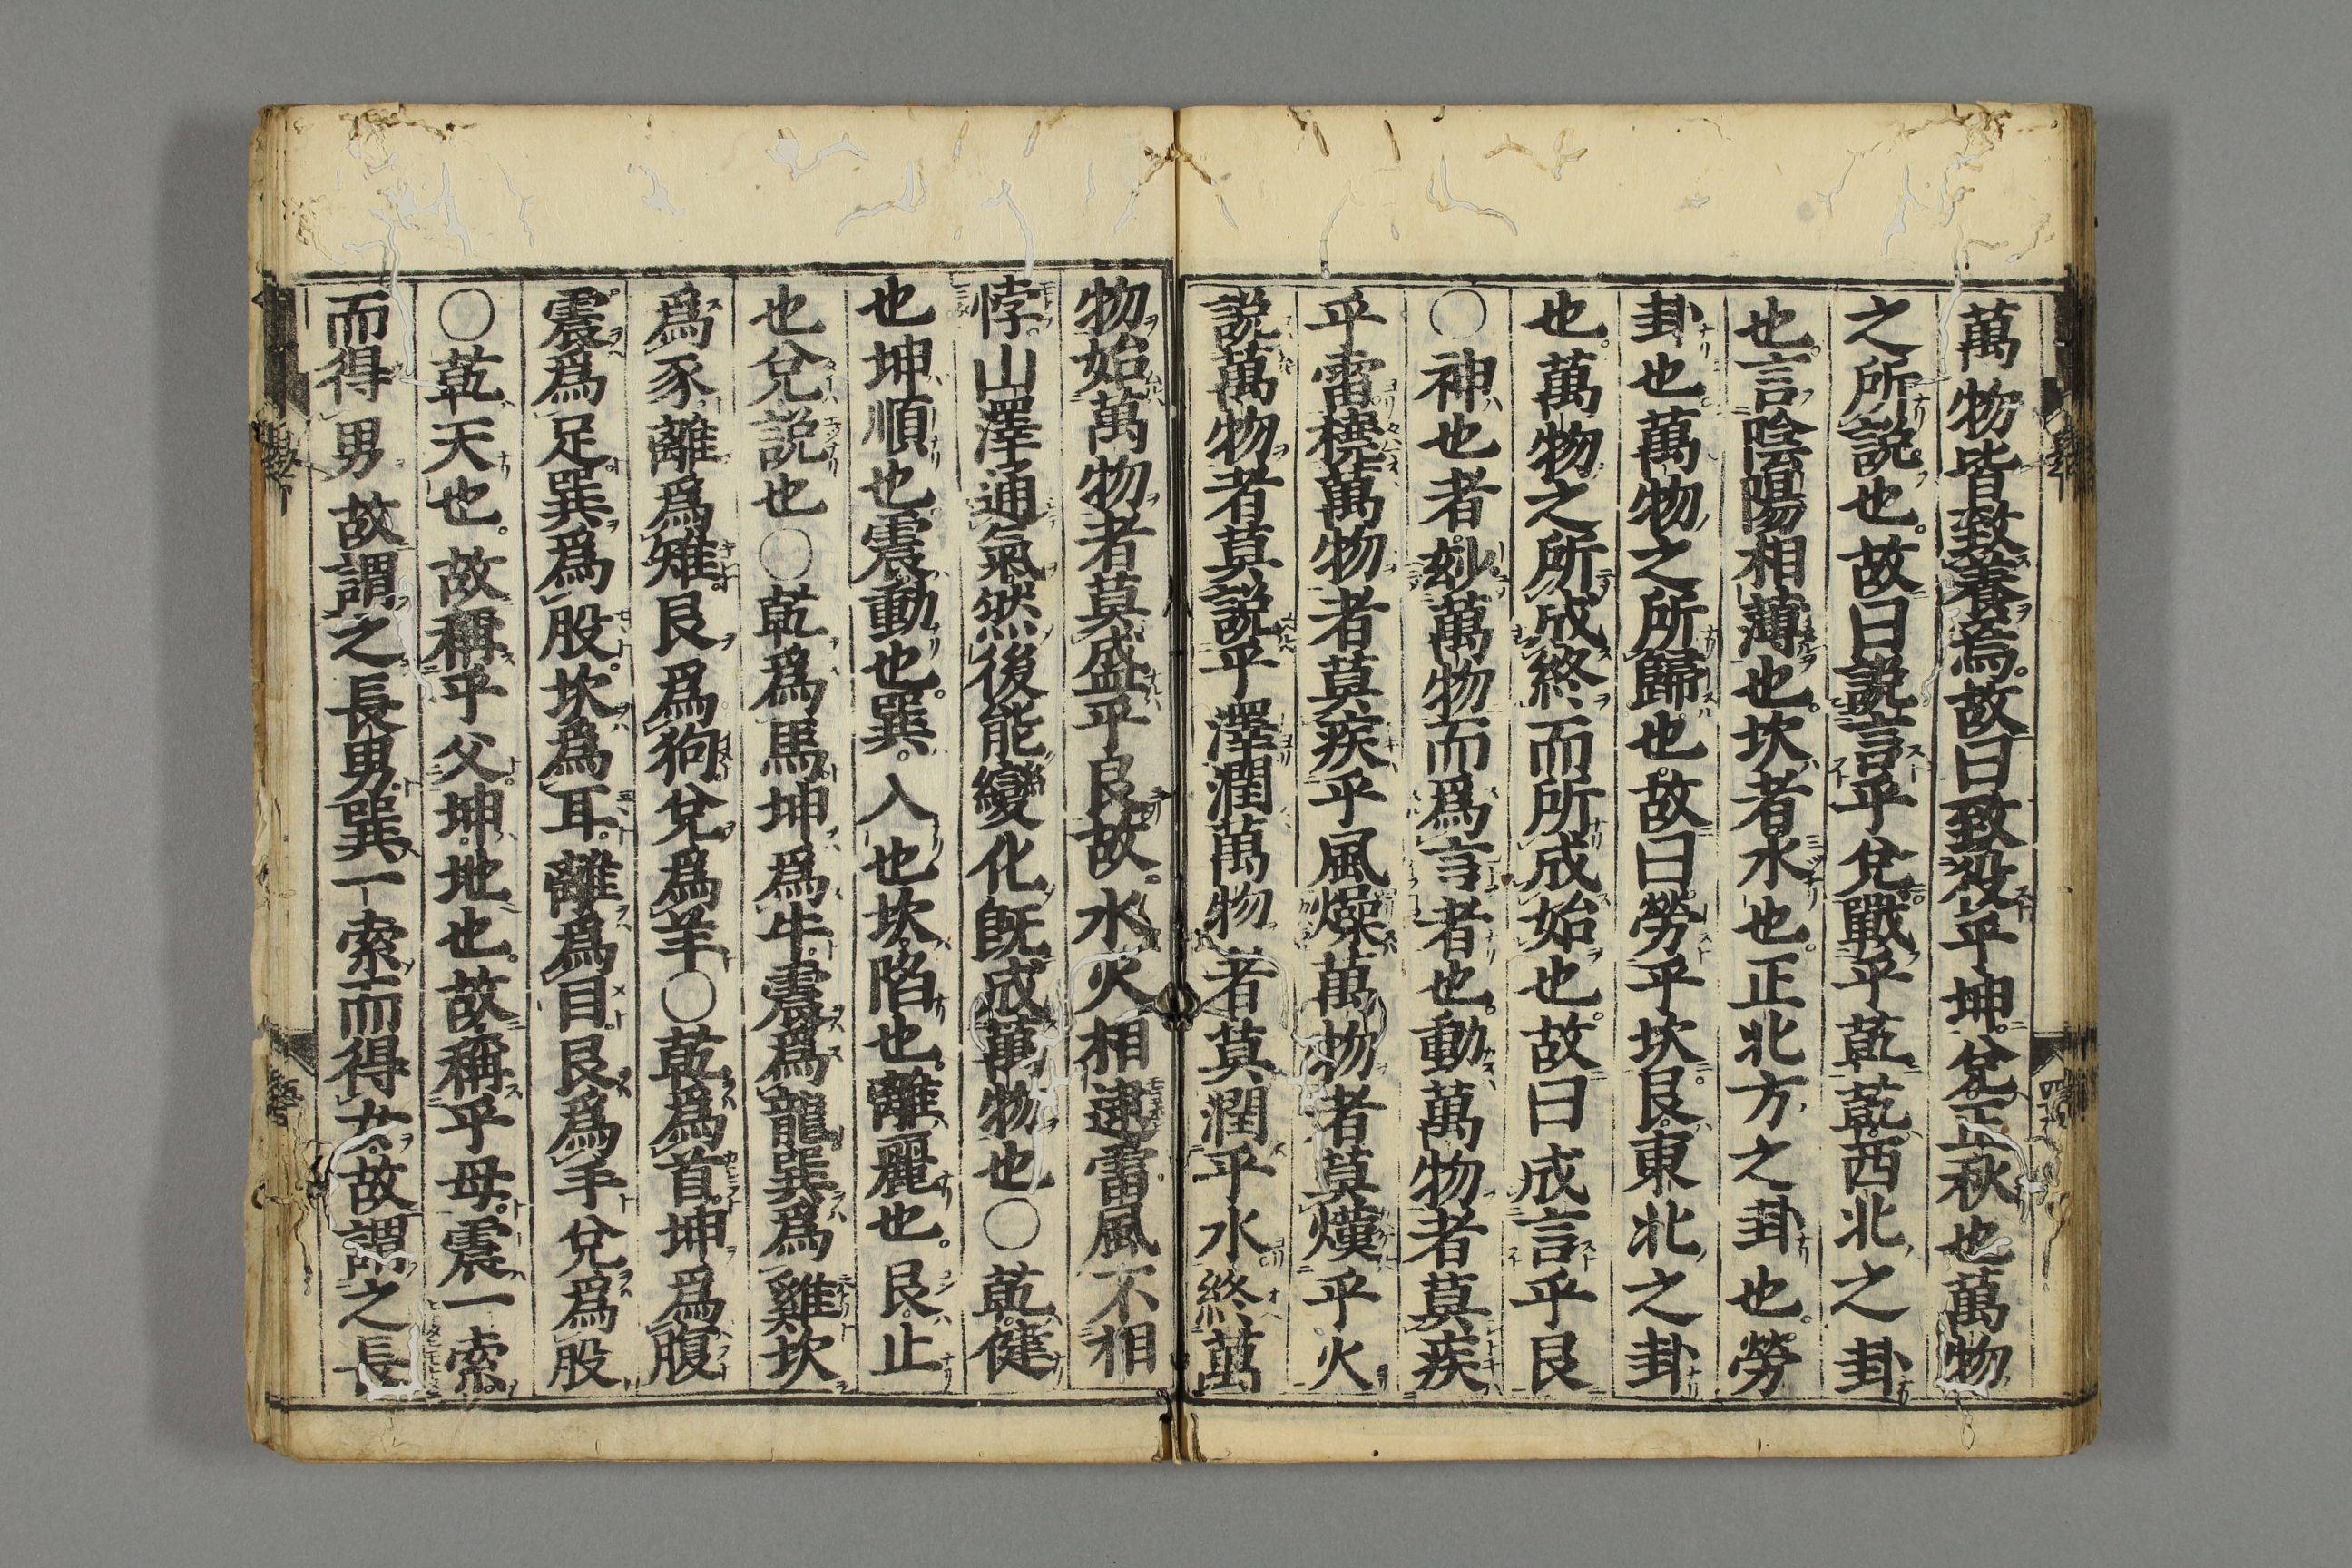 萬物皆致養焉故曰致役乎坤兌正秋也萬物
之所說也故曰說言乎兌戰乎乾乾西北之卦
也言陰陽相薄也坎者水也正北方之卦也勞
卦也萬物之所歸也故曰勞乎坎艮東北之卦
也萬物之所成終而所成始也故曰成言乎艮
〇神也者妙萬物而爲言者也動萬物者莫疾
乎雷橈萬物者莫疾乎風燥萬物者莫熯乎火
說萬物者莫說乎澤潤萬物者莫潤乎水終萬
物始萬物者莫盛乎艮故水火相逮雷風不相
悖山澤通氣然後能變化既成萬物也〇乾健
也坤順也震動也巽入也坎陷也離麗也艮止
也兌說也〇乾爲馬坤爲牛震爲龍巽爲雞坎
爲豕離爲雉艮爲狗兌爲羊〇乾爲首坤爲腹
震爲足巽爲股坎爲耳離爲目艮爲手兌爲股
〇乾天也故稱乎父坤地也故稱乎母震一索
而得男故謂之長男巽一索而得女故謂之長